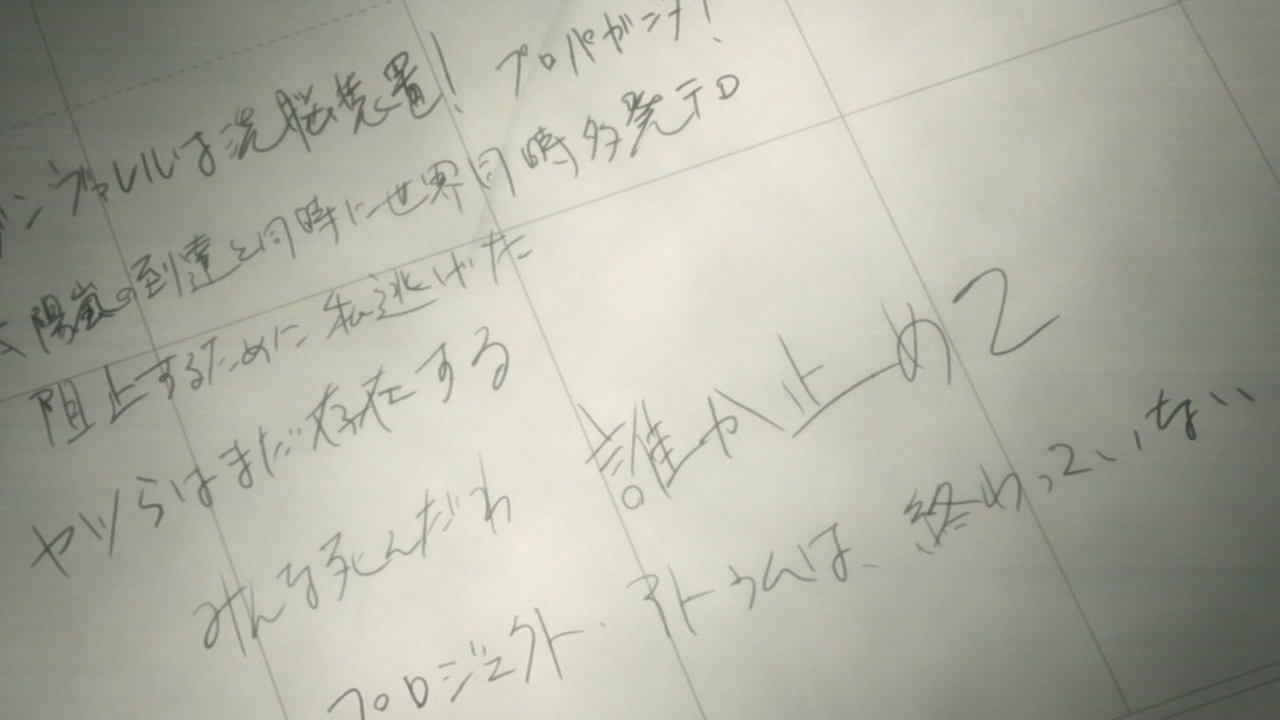 ガンヴァレルは洗脳装置! プロパガンダ!
太陽嵐の到達と同時に世界同時多発テロ
阻止するために私逃げた
ヤツらはまだ存在する
みんな死んだわ
誰か止めて
プロジェクト・アトゥムは、終わっていない